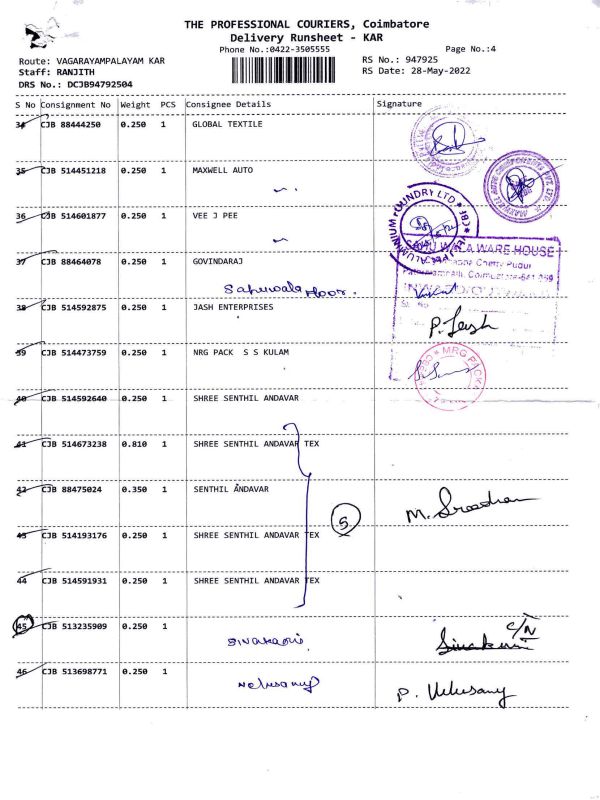 THE PROFESSIONAL COURIERS, Coimbatore
Delivery Runsheet - KAR
Phone No.:0422-3505555
Page No.:4
Route: VAGARAYAMPALAYAM KAR
RS No.: 947925
Staff: RANJITH
RS Date: 28-May-2022
DRS No.: DCJB94792504
S No Consignment No Weight PCS Consignee Details Signature
34 CJB 88444250 0.250 1 GLOBAL TEXTILE
35 CJB 514451218 0.250 1 MAXWELL AUTO
36 CJB 514601877 0.250 1 VEE J PEE
FOUNDRY LTD
37 CJB 88464078 0.250 1 GOVINDARAJ
WARE HOUSE
38 CJB 514592875 0.250 1 JASH ENTERPRISES
39 CJB 514473759 0.250 1 NRG PACK S S KULAM
MRG PACK
40 CJB 514592640 0.250 1 SHREE SENTHIL ANDAVAR
41 CJB 514673238 0.810 1 SHREE SENTHIL ANDAVAR TEX
42 CJB 88475024 0.350 1 SENTHIL ANDAVAR
5
43 CJB 514193176 0.250 1 SHREE SENTHIL ANDAVAR TEX
44 CJB 514591931 0.250 1 SHREE SENTHIL ANDAVAR TEX
45 CJB 513235909 0.250 1
C/N
46 CJB 513698771 0.250 1